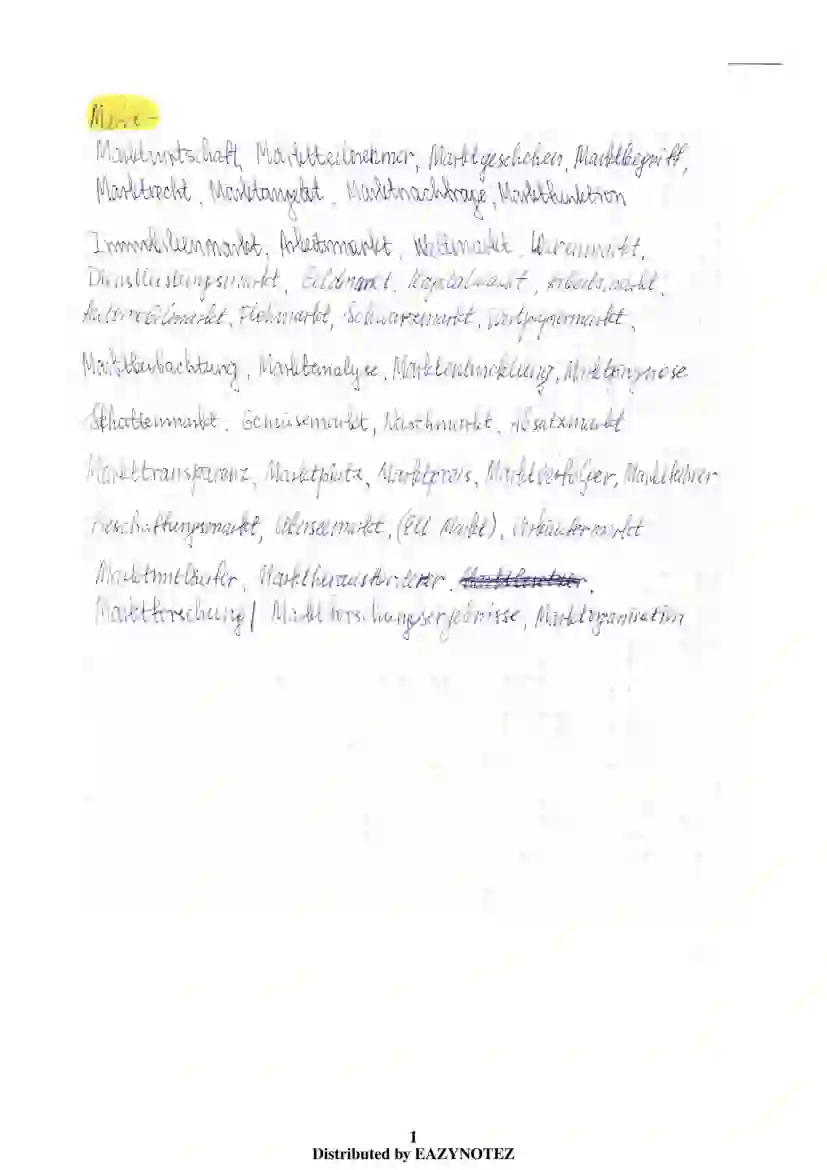 Marktwirtschaft, Marktteilnehmer, Marktgeschehen, Marktbegriff,
Marktrecht, Marktangebot, Marktnachfrage, Marktfunktion
Immobilienmarkt, Arbeitsmarkt, Weltmarkt, Warenmarkt,
Dienstleistungsmarkt, Geldmarkt, Kapitalmarkt, Arbeitsmarkt,
Automobilmarkt, Flohmarkt, Schwarzmarkt, Wertpapiermarkt,
Marktbeobachtung, Marktanalyse, Marktentwicklung, Marktprognose
Schattenmarkt, Gemüsemarkt, Naschmarkt, Absatzmarkt
Markttransparenz, Marktplatz, Marktpreis, Marktverfolger, Marktführer
Beschaffungsmarkt, Überseemarkt, (EU Markt), Verkäufermarkt
Marktmitläufer, Marktherausforderer,
Marktforschung / Marktforschungsergebnisse, Marktorganisation
1
Distributed by EAZYNOTEZ